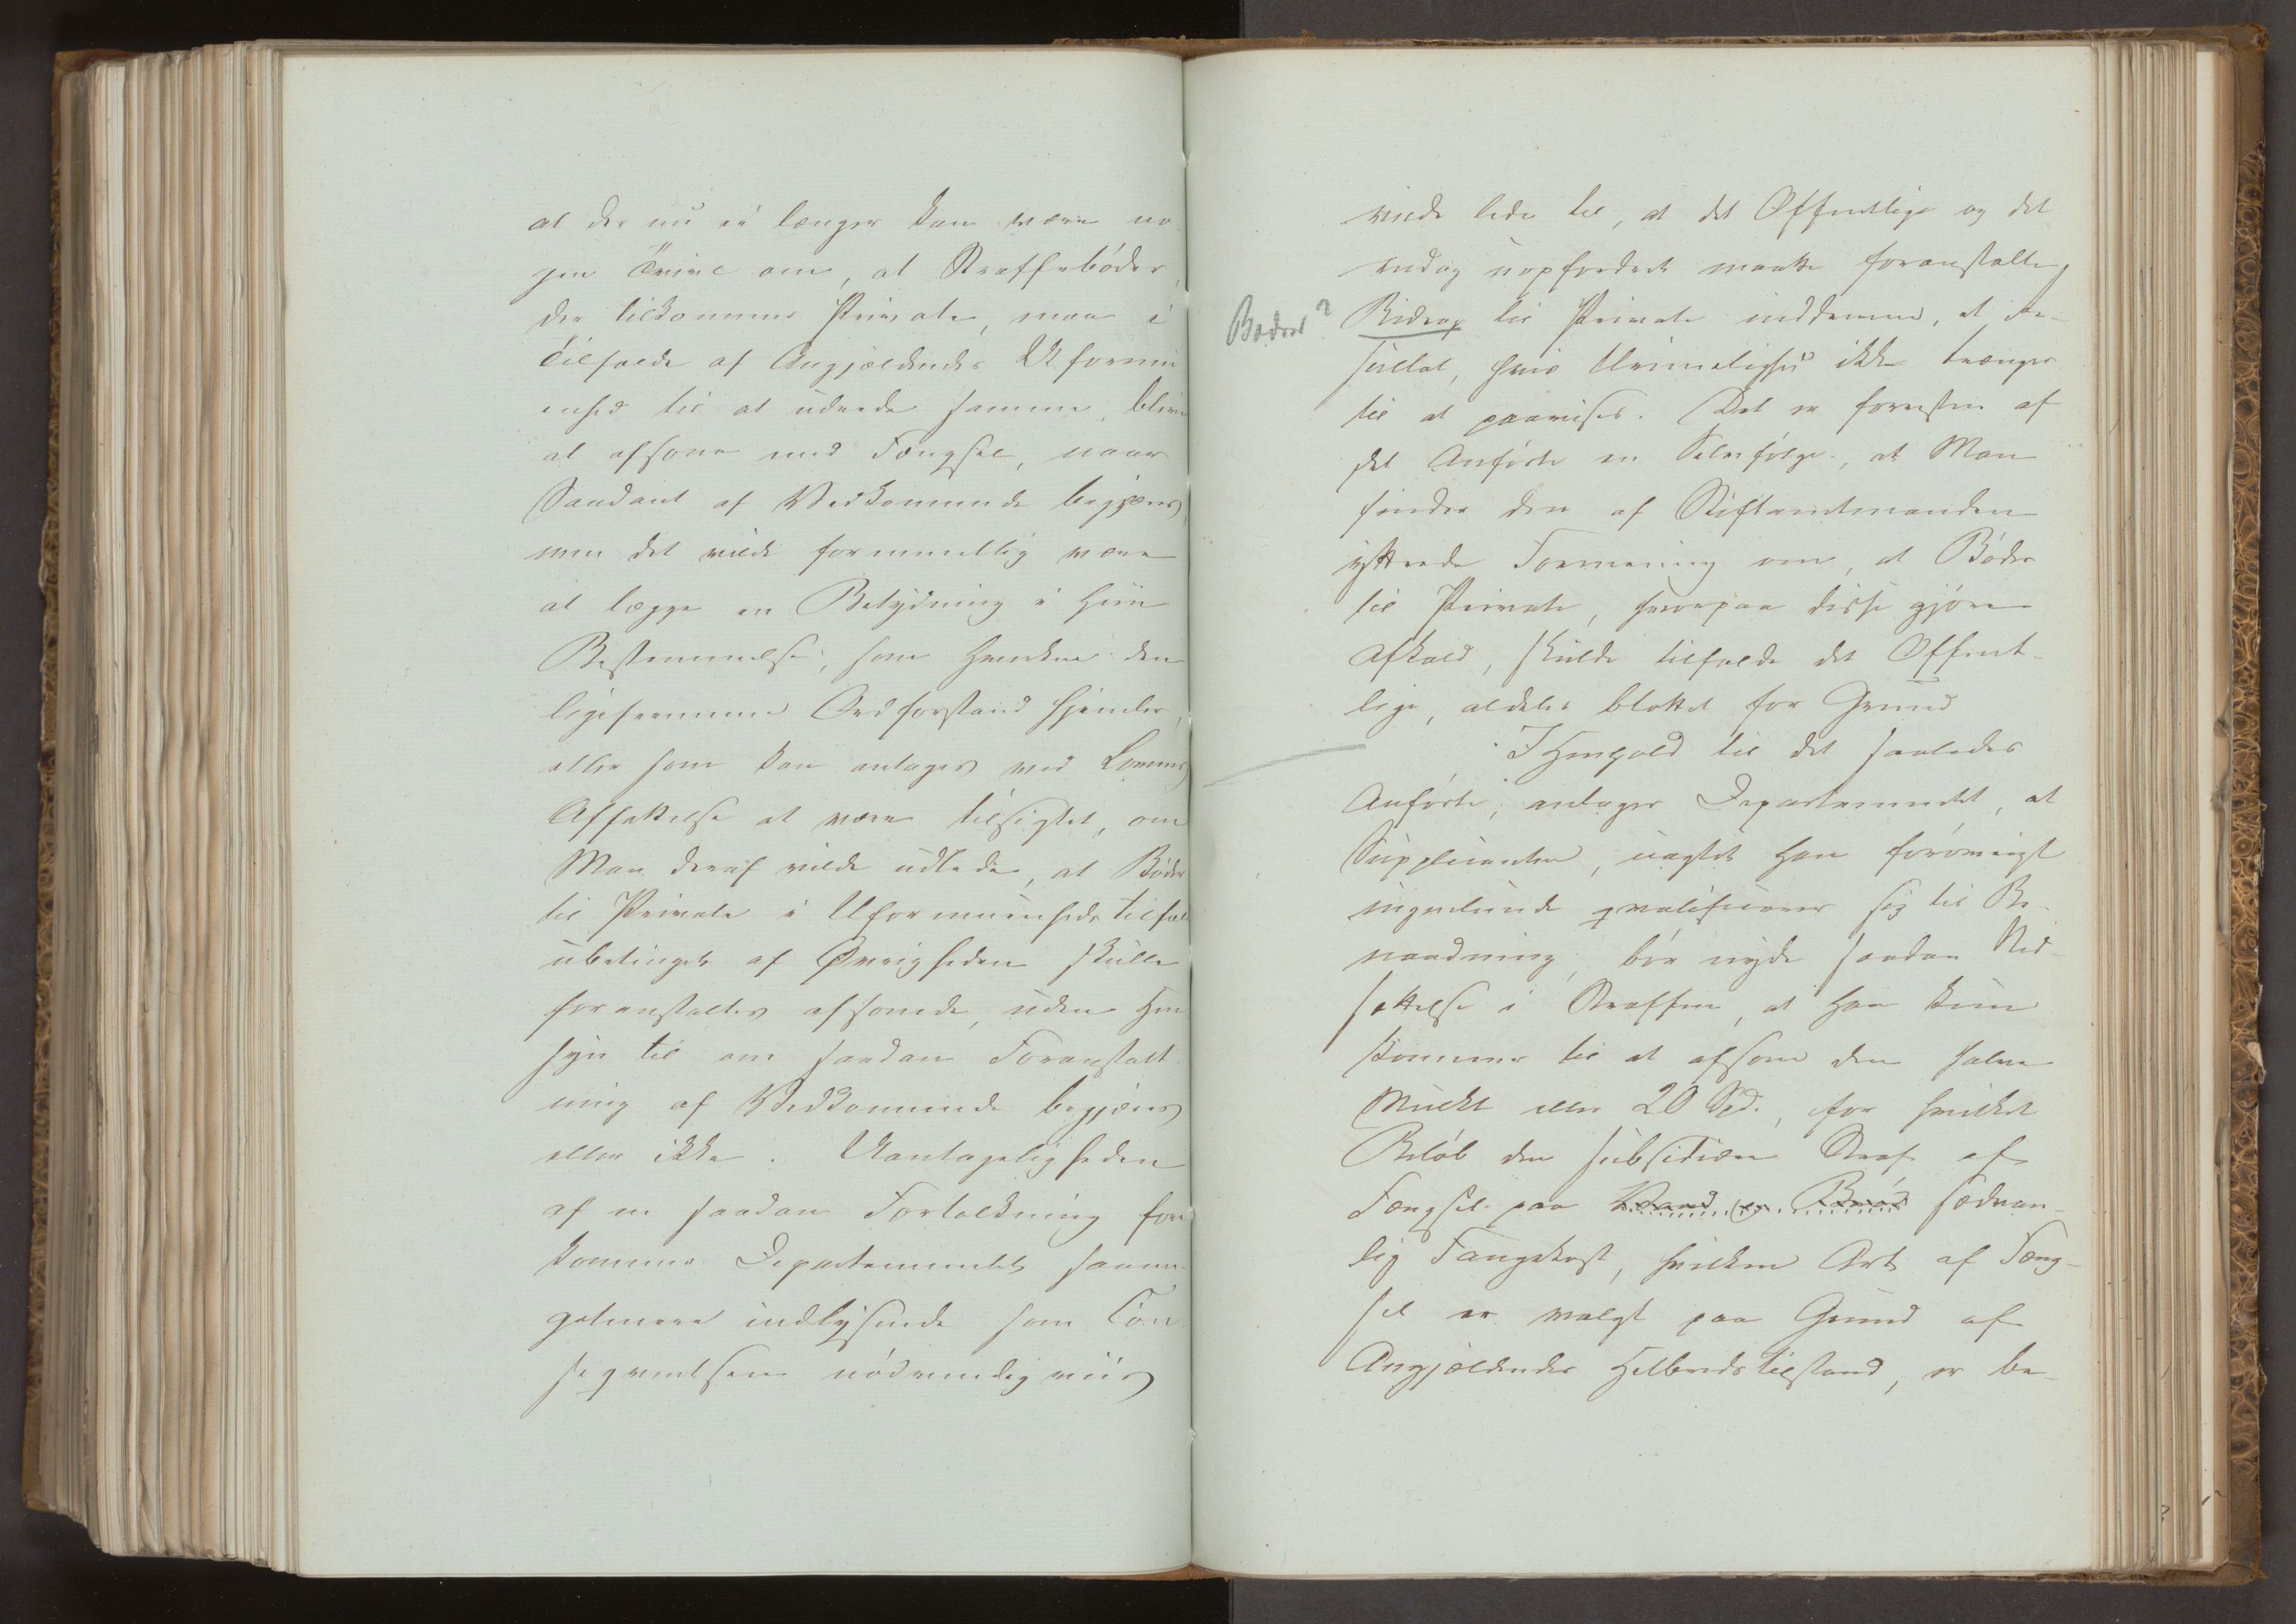 at der nu ei længer kan være no
gen Tvivl om, at Straffebøder,
der tilkommer Private, maa i
Tilfælde af Angjældendes Uformu
enhed til at udrede samme, blive
at afsone med Fængsel, naar
Saadant af Vedkommende begjæres,
men det vilde formentlig være
at lægge en Betydning i hiin
Bestemmelse, som hverken den
ligefremme Ordforstand hjemler,
eller som kan antages ved Lovens
Affattelse at være tilsigtet, om
Man deraf vilde udlede, at Bøder
til Private i Uformuenheds tilfæl
ubetinget af Øvrigheden skulle
foranstaltes afsonede, uden Hen
syn til om saadan Foranstalt
ning af Vedkommende begjæres
eller ikke. Uantageligheden
af en saadan Fortolkning fore
kommer Departementet saameget
mere indlysende som Con
seqventsen nødvendigviis
vilde lede til, at det Offentlige og det
endog uopfordret maatte foranstalte
Bødres?
Bidrag til Private inddrevne, et Re-
sultat, hvis Urimelighed ikke trænger
til at paavises. Det er forresten af
det Anførte en Selvfølge, at Man
finder den af Stiftamtmanden
yttrede Formening om, at Bøder
til Private, hvorpaa disse gjøre
Afkald, skulde tilfalde det Offent-
lige, aldeles blottet for Grund
I Henhold til det saaledes
Anførte, antager Departementet, at
Supplicanten, uagtet han forøvrigt
ingenlunde qvalificerer sig til Be-
naadning, bør nyde saadan Ned-
sættelse i Straffen, at han kun
kommer til at afsone den halve
Mulct eller 20 Spd., for hvilket
Beløb den subsidiære Straf af
Fængsel paa Vand og Brød sædvan-
lig Fangekost, hvilken Art af Fæng-
sel er valgt paa Grund af
Angjældendes Helbredstilstand, er be-